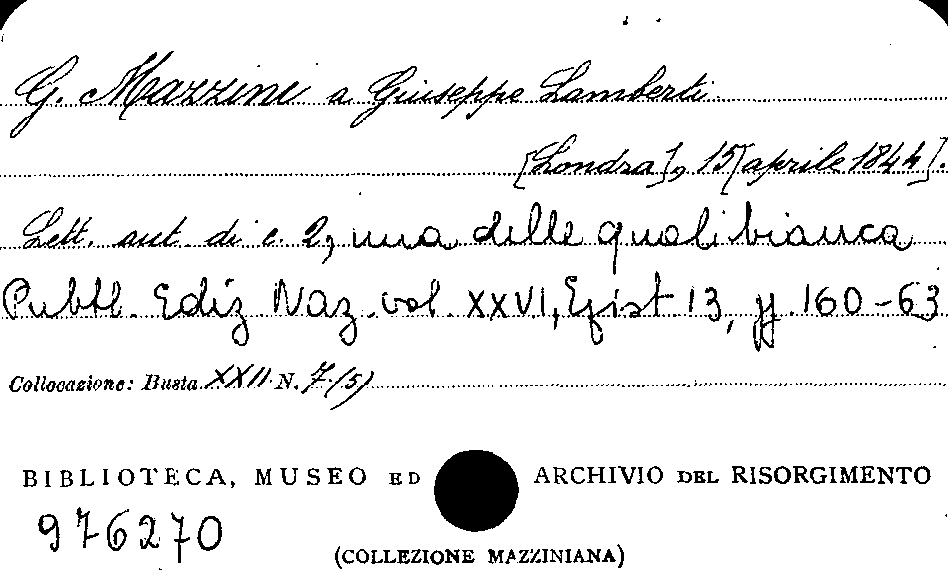 G. Mazzini a Giuseppe Lamberti
[Londra], 15 [aprile 1844].
Lett. aut. di c. 2, una delle quali bianca
Pubbl. Ediz Naz. vol. XXVI, Epist 13, pp. 160-63
Collocazione: Busta XXII N. 7 (5)
BIBLIOTECA, MUSEO ED ARCHIVIO DEL RISORGIMENTO
976270
(COLLEZIONE MAZZINIANA)